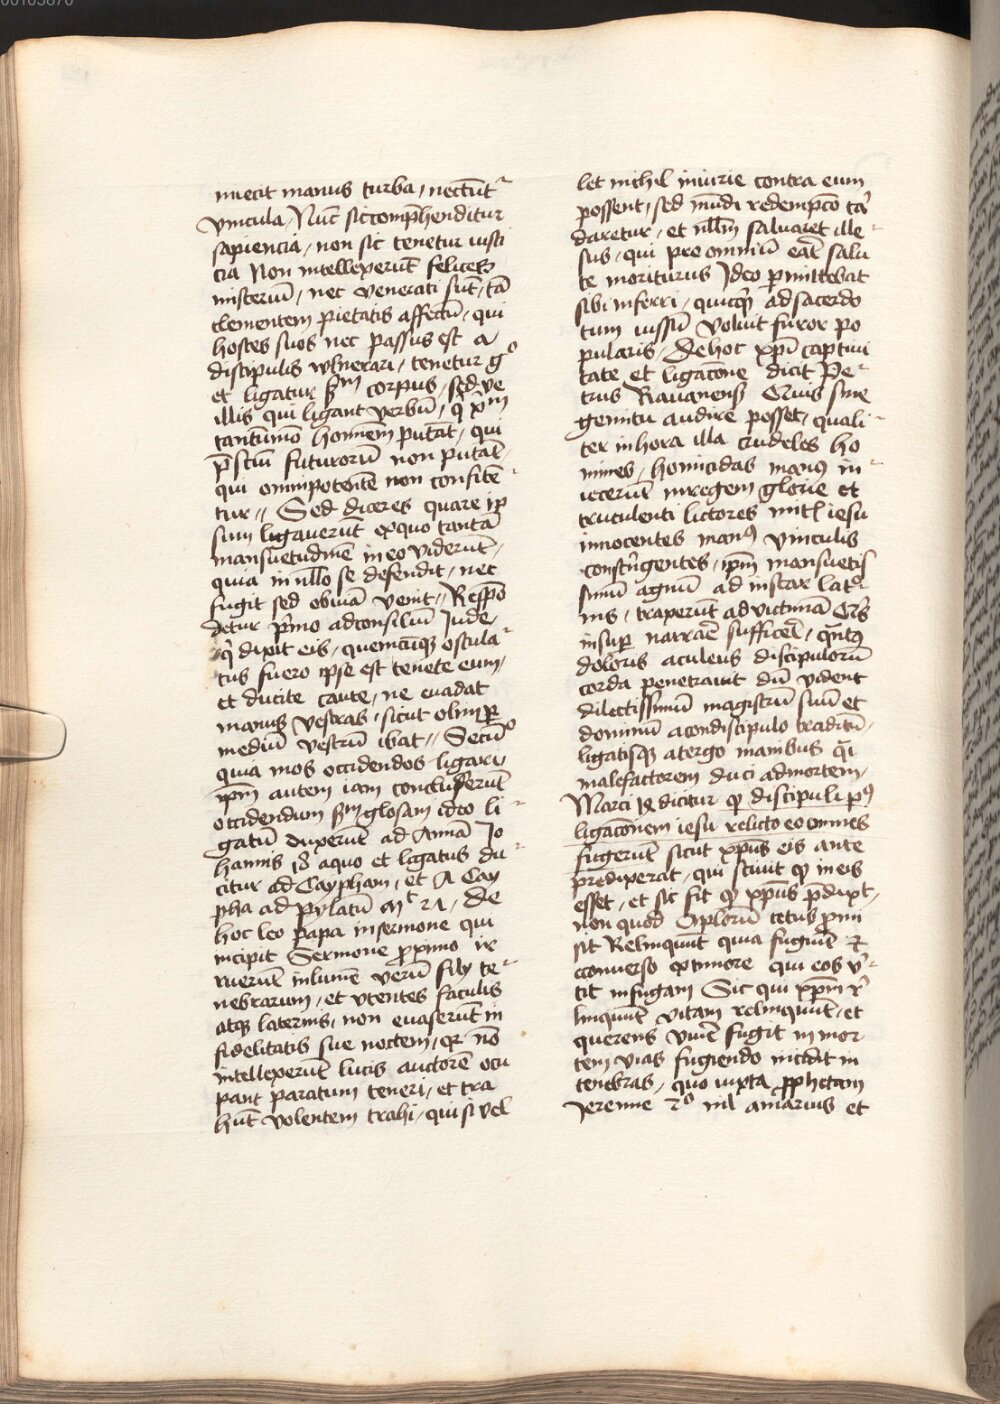 iniecit manus turba, nectūt᷑
vincula, Nūc sic cōp̄henditur
sapiencia, non sic tenetur iusti
cia Non intellexerūt felices
misteriū, nec venerati sūt, tā
clementem pietatis affectū, qui
hostes suos nec passus est a
discipulis wlnerari, tenetur gͦ
et ligatur sm̄ corpus, sed ve
illis qui ligant verbū, qͥ xp̄m
tantūmō hominēm putāt, qui
p̄sciū futurorū non putāt,
qui omnipotentē non confitē
tur // Sed diceres quare ip̄
sum ligauerūt exquo tantā
mansuetudinē in eo viderūt,
quia in nllo se defendit, nec
fugit sed obuiā venit // Respō
detur pͥmo ad consiliū Jude,
qͥ dixit eis, quemcūqꝫ oscula
tus fuero ipse est tenete eum,
et ducite caute, ne euadat
manus vestras, sicut olim ꝑ
mediū vestrū ibat // Secūͦ
quia mos occidendos ligari,
ip̄m autem iam concluserūt
occidendum sm̄ glosam ideo li
gatū duxerūt ad Annā Jo
hannis 18 a quo et ligatus du
citur ad Caypham, et a Cay
pha ad pylatū mͭ 27, De
hoc leo papa in sermone qui
incipit Sermone proximo ir
ruerūt in lumē verū filij te
nebrarum, et vtentes faculis
atqꝫ laternis, non euaserūt in
fidelitatis sue noctem, qr nō
intellexerūt lucis auctorē occu
pant paratum teneri, et tra
hūt volentem trahi, qui si vel
let nichil iniurie contra eum
possent, sed mūdi redempcō tͣ
daretur, et nllm̄ saluaret ille
sus, qui pro omniū eāt salu
te moriturus Ideo ꝑmittebat
sibi inferri, quicqͥd ad sacerdo
tum iussū voluit furor po
pularis, De hoc xpī captiui
tate et ligacōne dicit Pe
trus Rauanens̄ Quis sine
gemitu audire posset, quali
ter in hora illa crudeles ho
mines, homicidas manꝯ in
iecerūt in regem glorie et
truculenti lictores mitꝭ iesu
innocentes manꝯ vinculis
constͥngentes, ip̄m mansuetis
simū agnū ad instar latͦ
nis, traxerūt ad victimā Qͥs
insuꝑ narrare sufficēt, qͣntꝰ
doloris aculeus discipulorū
corda penetrauit dū vident
dilectissimū magistrū suū et
dominū a condiscipulo traditū,
ligatisqꝫ a tergo manibus qͣi
malefactorem duci ad mortem,
Marci 14 dicitur ꝙ discipuli pꝰ
ligacōnem iesu relicto eo omnes
fugerūt sicut xpūs eis ante
predixerat, qui sciuit ꝙ in eis
esset, et sic fit ꝙ xpūs p̄dixt,
non quod Aplorū cetus pͥmi
sit Relinquūt quia fugiūt ⁊
econuerso ex timore qui eos vͬ
tit in fugam Sic qui xp̄m rͤ
linquūt vitam relinquūt, et
querens viuē fugit in mor
tem vias fugiendo incidit in
tenebras, quo iuxta ꝓphetam
Jeremie 2ͦ nil amarius et